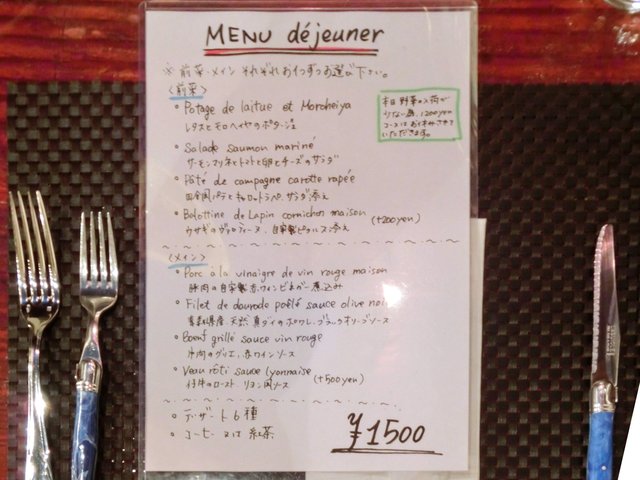 MENU déjeuner
※ 前菜・メイン それぞれお1つずつお選び下さい。
<前菜>
• Potage de laitue et Moroheiya
レタスとモロヘイヤのポタージュ
• Salade saumon mariné
サーモンマリネとトマトと卵とチーズのサラダ
• Pâté de campagne carotte rapée
田舎風パテとキャロットラペ、サラダ添え
• Bolottine de Lapin cornichon maison (+200yen)
ウサギのヴァロティーヌ、自家製ピクルス添え
本日 野菜の入荷が
少ない為、1200yen
コースはお休みさせて
いただきます。
<メイン>
• Porc à la vinaigre de vin rouge maison
豚肉の自家製赤ワインビネガー煮込み
• Filet de daurade poêlé sauce olive noir
青森県産・天然真ダイのポワレ、ブラックオリーブソース
• Boeuf grillé sauce vin rouge
牛肉のグリエ、赤ワインソース
• Veau rôti sauce lyonnaise (+500yen)
仔牛のロースト リヨン風ソース
• デザート6種
• コーヒー又は紅茶
¥1500